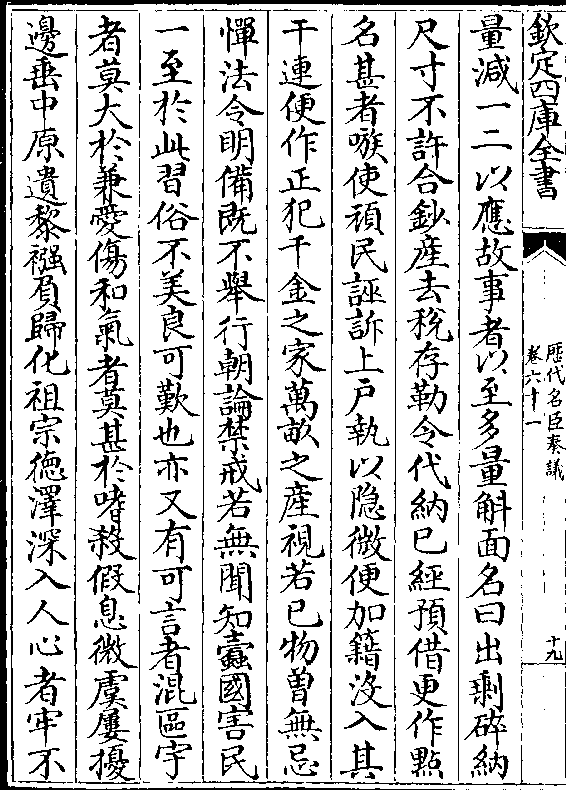 欽定四庫全書
歷代名臣奏議
卷六十一
十九
量減一二以應故事者以至多量斛面名曰出剩碎納
尺寸不許合鈔産去稅存勒令代納已經預借更作點
名甚者嗾使頑民誣訴上戸執以隐微便加籍沒入其
干連便作正犯千金之家萬畝之産視若已物曽無忌
憚法令明備既不舉行朝論禁戒若無聞知蠧國害民
一至於此習俗不美良可歎也亦又有可言者混區宇
者莫大於兼愛傷和氣者莫甚於嗜殺假息微虞屢擾
邊垂中原遺黎襁負歸化祖宗德澤深入人心者牢不